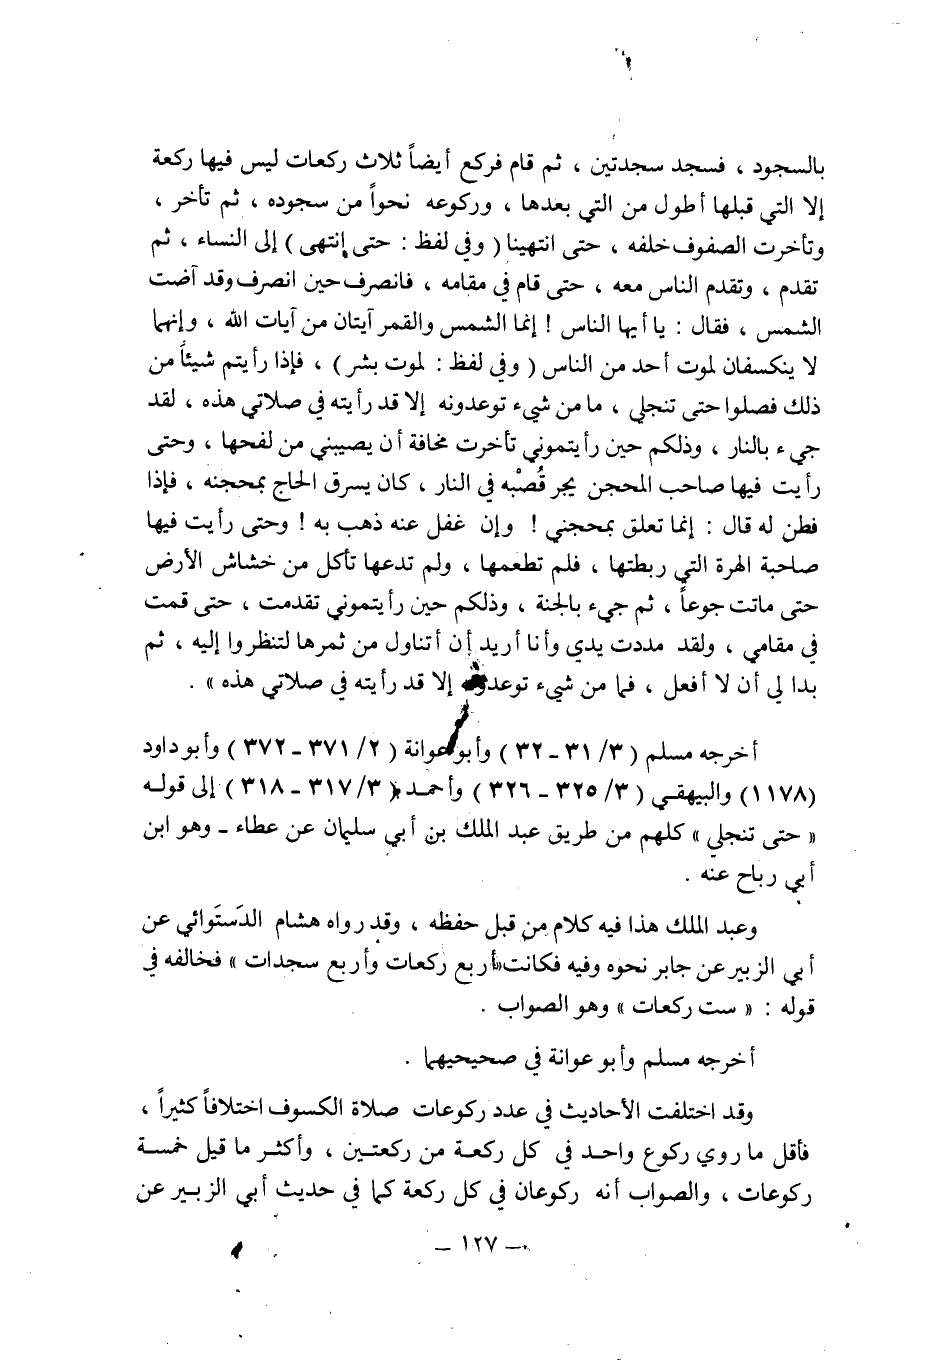 بالسجود ، فسجد سجدتين ، ثم قام فركع أيضاً ثلاث ركعات ليس فيها ركعة
إلا التي قبلها أطول من التي بعدها ، وركوعه نحواً من سجوده ، ثم تأخر ،
وتأخرت الصفوف خلفه ، حتى انتهينا ( وفي لفظ : حتى إنتهى ) إلى النساء ، ثم
تقدم ، وتقدم الناس معه ، حتى قام في مقامه ، فانصرف حين انصرف وقد آضت
الشمس ، فقال : يا أيها الناس ! إنما الشمس والقمر آيتان من آيات الله ، وإنهما
لا ينكسفان لموت أحد من الناس ( وفي لفظ : لموت بشر ) ، فإذا رأيتم شيئاً من
ذلك فصلوا حتى تنجلي ، ما من شيء توعدونه إلا قد رأيته في صلاتي هذه ، لقد
جيء بالنار ، وذلكم حين رأيتموني تأخرت مخافة أن يصيبني من لفحها ، وحتى
رأيت فيها صاحب المحجن يجر قُصْبه في النار ، كان يسرق الحاج بمحجنه ، فإذا
فطن له قال : إنما تعلق بمحجني ! وإن غفل عنه ذهب به ! وحتى رأيت فيها
صاحبة الهرة التي ربطتها ، فلم تطعمها ، ولم تدعها تأكل من خشاش الأرض
حتى ماتت جوعاً ، ثم جيء بالجنة ، وذلكم حين رأيتموني تقدمت ، حتى قمت
في مقامي ، ولقد مددت يدي وأنا أريد أن أتناول من ثمرها لتنظروا إليه ، ثم
بدا لي أن لا أفعل ، فما من شيء توعدونه إلا قد رأيته في صلاتي هذه » .
أخرجه مسلم ( ٣/ ٣١ ـ ٣٢ ) وأبو عوانة ( ٢/ ٣٧١ ـ ٣٧٢ ) وأبو داود
(١١٧٨) والبيهقي ( ٣/ ٣٢٥ ـ ٣٢٦ ) وأحمد ( ٣/ ٣١٧ ـ ٣١٨ ) إلى قوله
« حتى تنجلي » كلهم من طريق عبد الملك بن أبي سليمان عن عطاء ـ وهو ابن
أبي رباح عنه .
وعبد الملك هذا فيه كلام من قبل حفظه ، وقد رواه هشام الدَستَوائي عن
أبي الزبير عن جابر نحوه وفيه فكانت «أربع ركعات وأربع سجدات » فخالفه في
قوله : « ست ركعات » وهو الصواب .
أخرجه مسلم وأبو عوانة في صحيحيهما .
وقد اختلفت الأحاديث في عدد ركوعات صلاة الكسوف اختلافاً كثيراً ،
فأقل ما روي ركوع واحد في كل ركعة من ركعتين ، وأكثر ما قيل خمسة
ركوعات ، والصواب أنه ركوعان في كل ركعة كما في حديث أبي الزبير عن
ـ ١٢٧ ـ